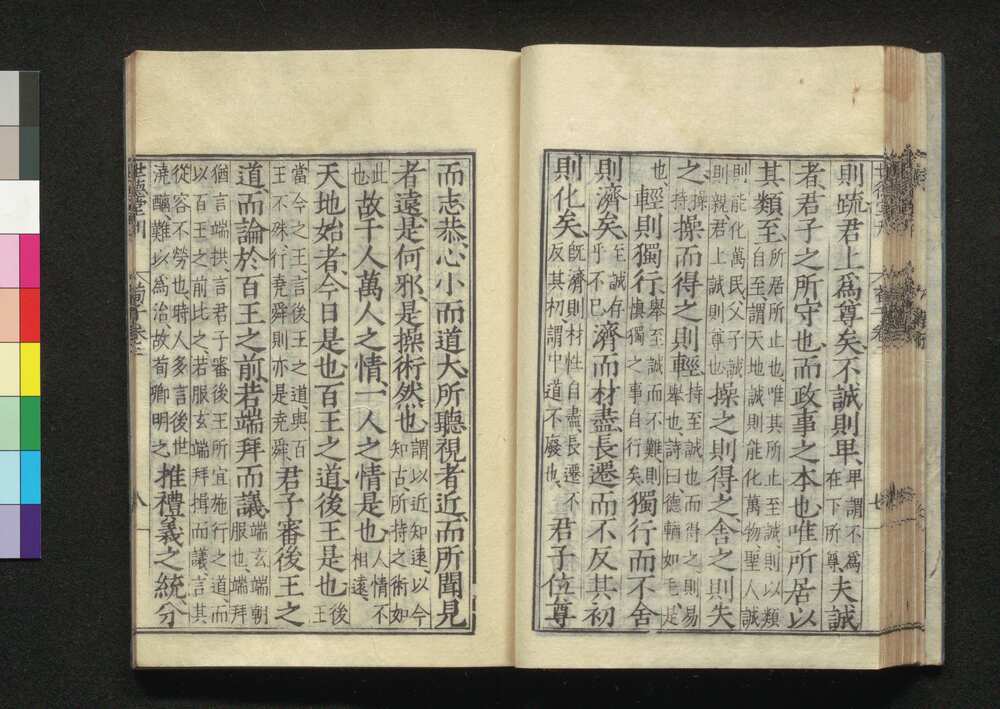 則疏君上爲尊矣不誠則卑卑謂不爲在下所尊夫誠
者君子之所守也而政事之本也唯所居以
其類至所居所止也唯其所止至誠則以類自至謂天地誠則能化萬物聖人誠
則能化萬民父子誠則親君上誠則尊也操之則得之舍之則失
之操持操而得之則輕持至誠也而得之則易舉也詩曰德輶如毛是
也輕則獨行舉至誠而不難則愼獨之事自行矣獨行而不舍
則濟矣至誠存乎不已濟而材盡長遷而不反其初
則化矣旣濟則材性自盡長遷不反其初謂中道不廢也君子位尊
而志恭心小而道大所聽視者近而所聞見
者遠是何邪是操術然也謂以近知遠以今知古所持之術如
此也故千人萬人之情一人之情是也人情不相遠
天地始者今日是也百王之道後王是也後王
當今之王言後王之道與百王不殊行堯舜則亦是堯舜君子審後王之
道而論於百王之前若端拜而議端玄端朝服也端拜
猶言端拱言君子審後王所宜施行之道而以百王之前比之若服玄端拜揖而議言其
從容不勞也時人多言後世澆醨難以爲治故荀卿明之推禮義之統分
世德堂刊
荀子卷二
八